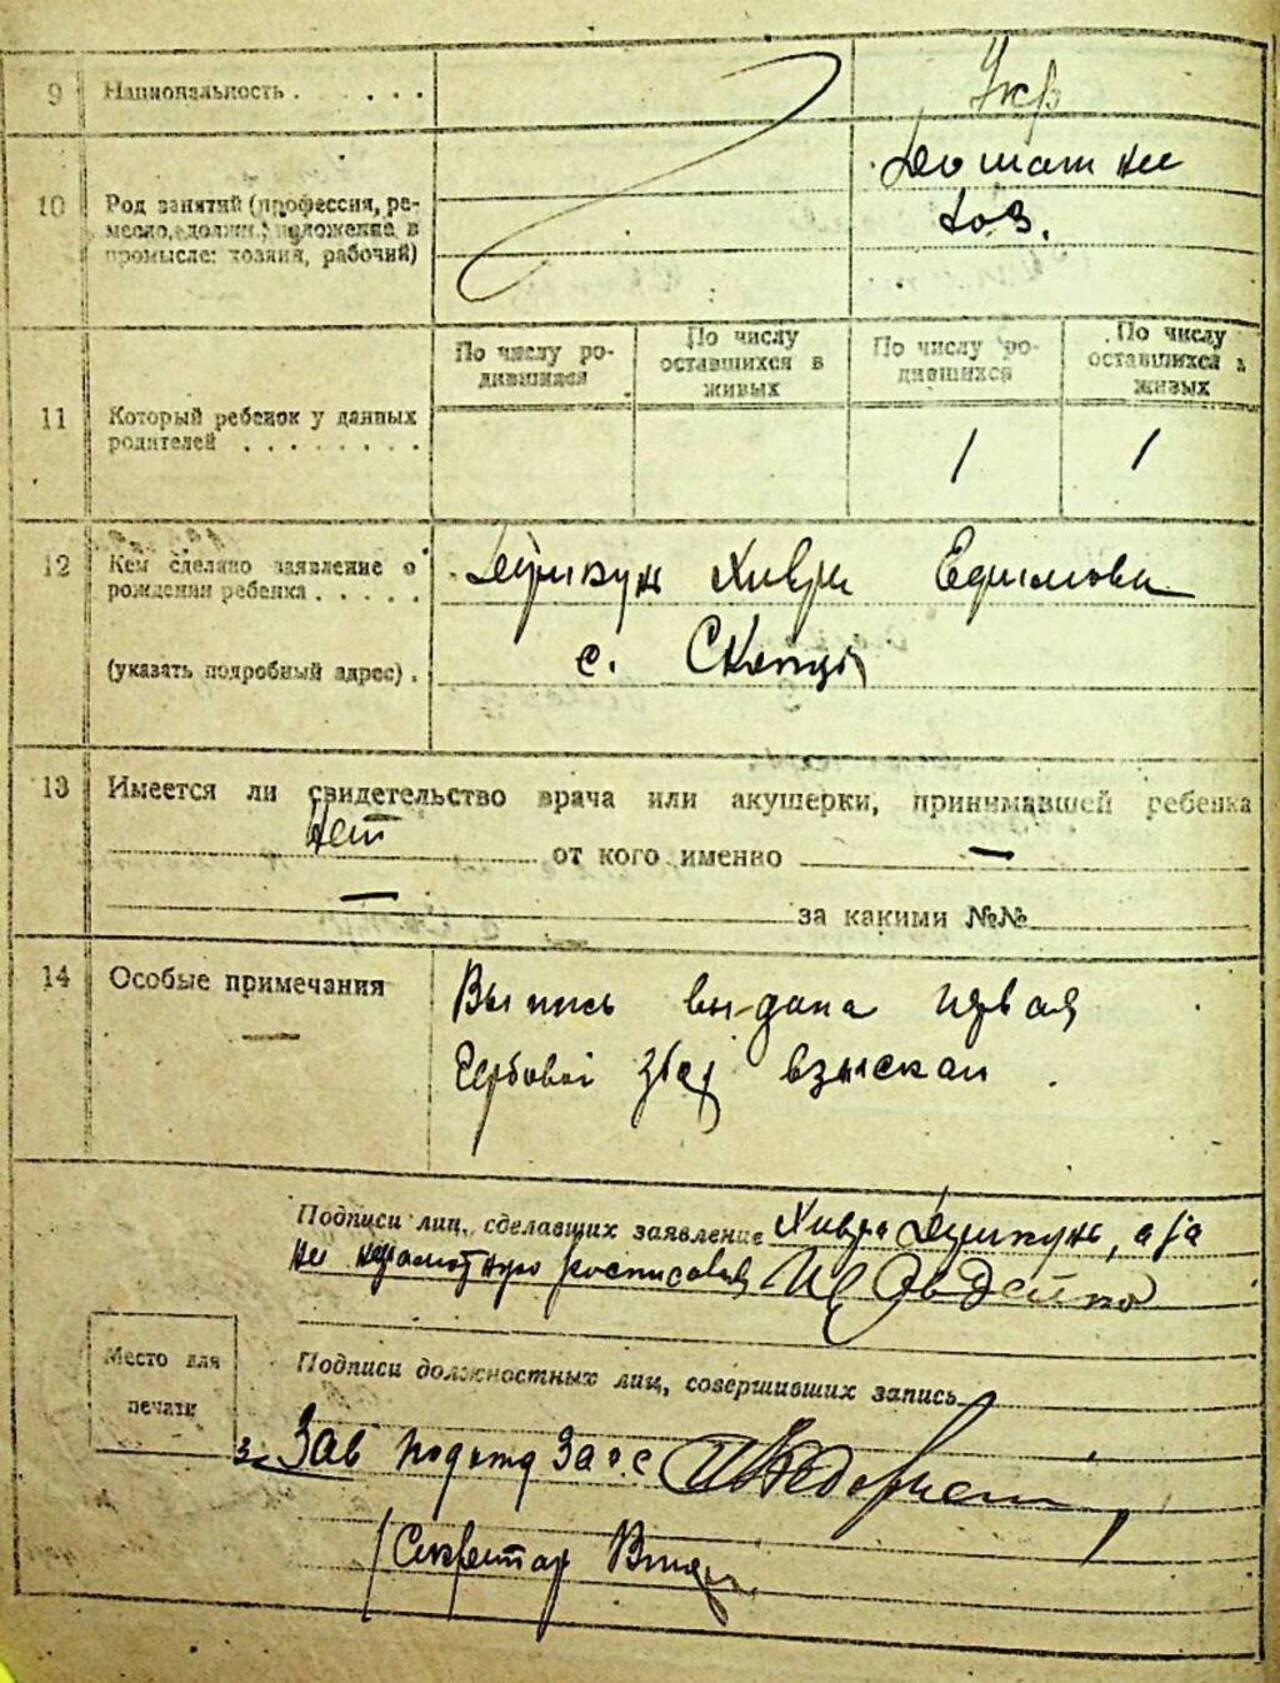 9 Национальность . . . . . Укр
10 Род занятий (профессия, ре-
месло, должн.; положение в
промысле: хозяин, рабочий)
Домашнее
хоз.
11 Который ребенок у данных
родителей . . . . . . . .
По числу ро-
дившихся
По числу
оставшихся в
живых
По числу ро-
дившихся
По числу
оставшихся в
живых
1 1
12 Кем сделано заявление о
рождении ребенка . . . . .
Хивря Ефимовна
(указать подробный адрес) .
с. Скопцы
13 Имеется ли свидетельство врача или акушерки, принимавшей ребенка
Нет от кого именно —
— за какими №№
14 Особые примечания
—
Выпись выдана первая
Гербовой збор взыскан
Подписи лиц, сделавших заявление Хивря, а за
не неграмотную росписовался
Место для
печати
Подписи должностных лиц, совершивших запись
Зав подотд Загс
Секретар